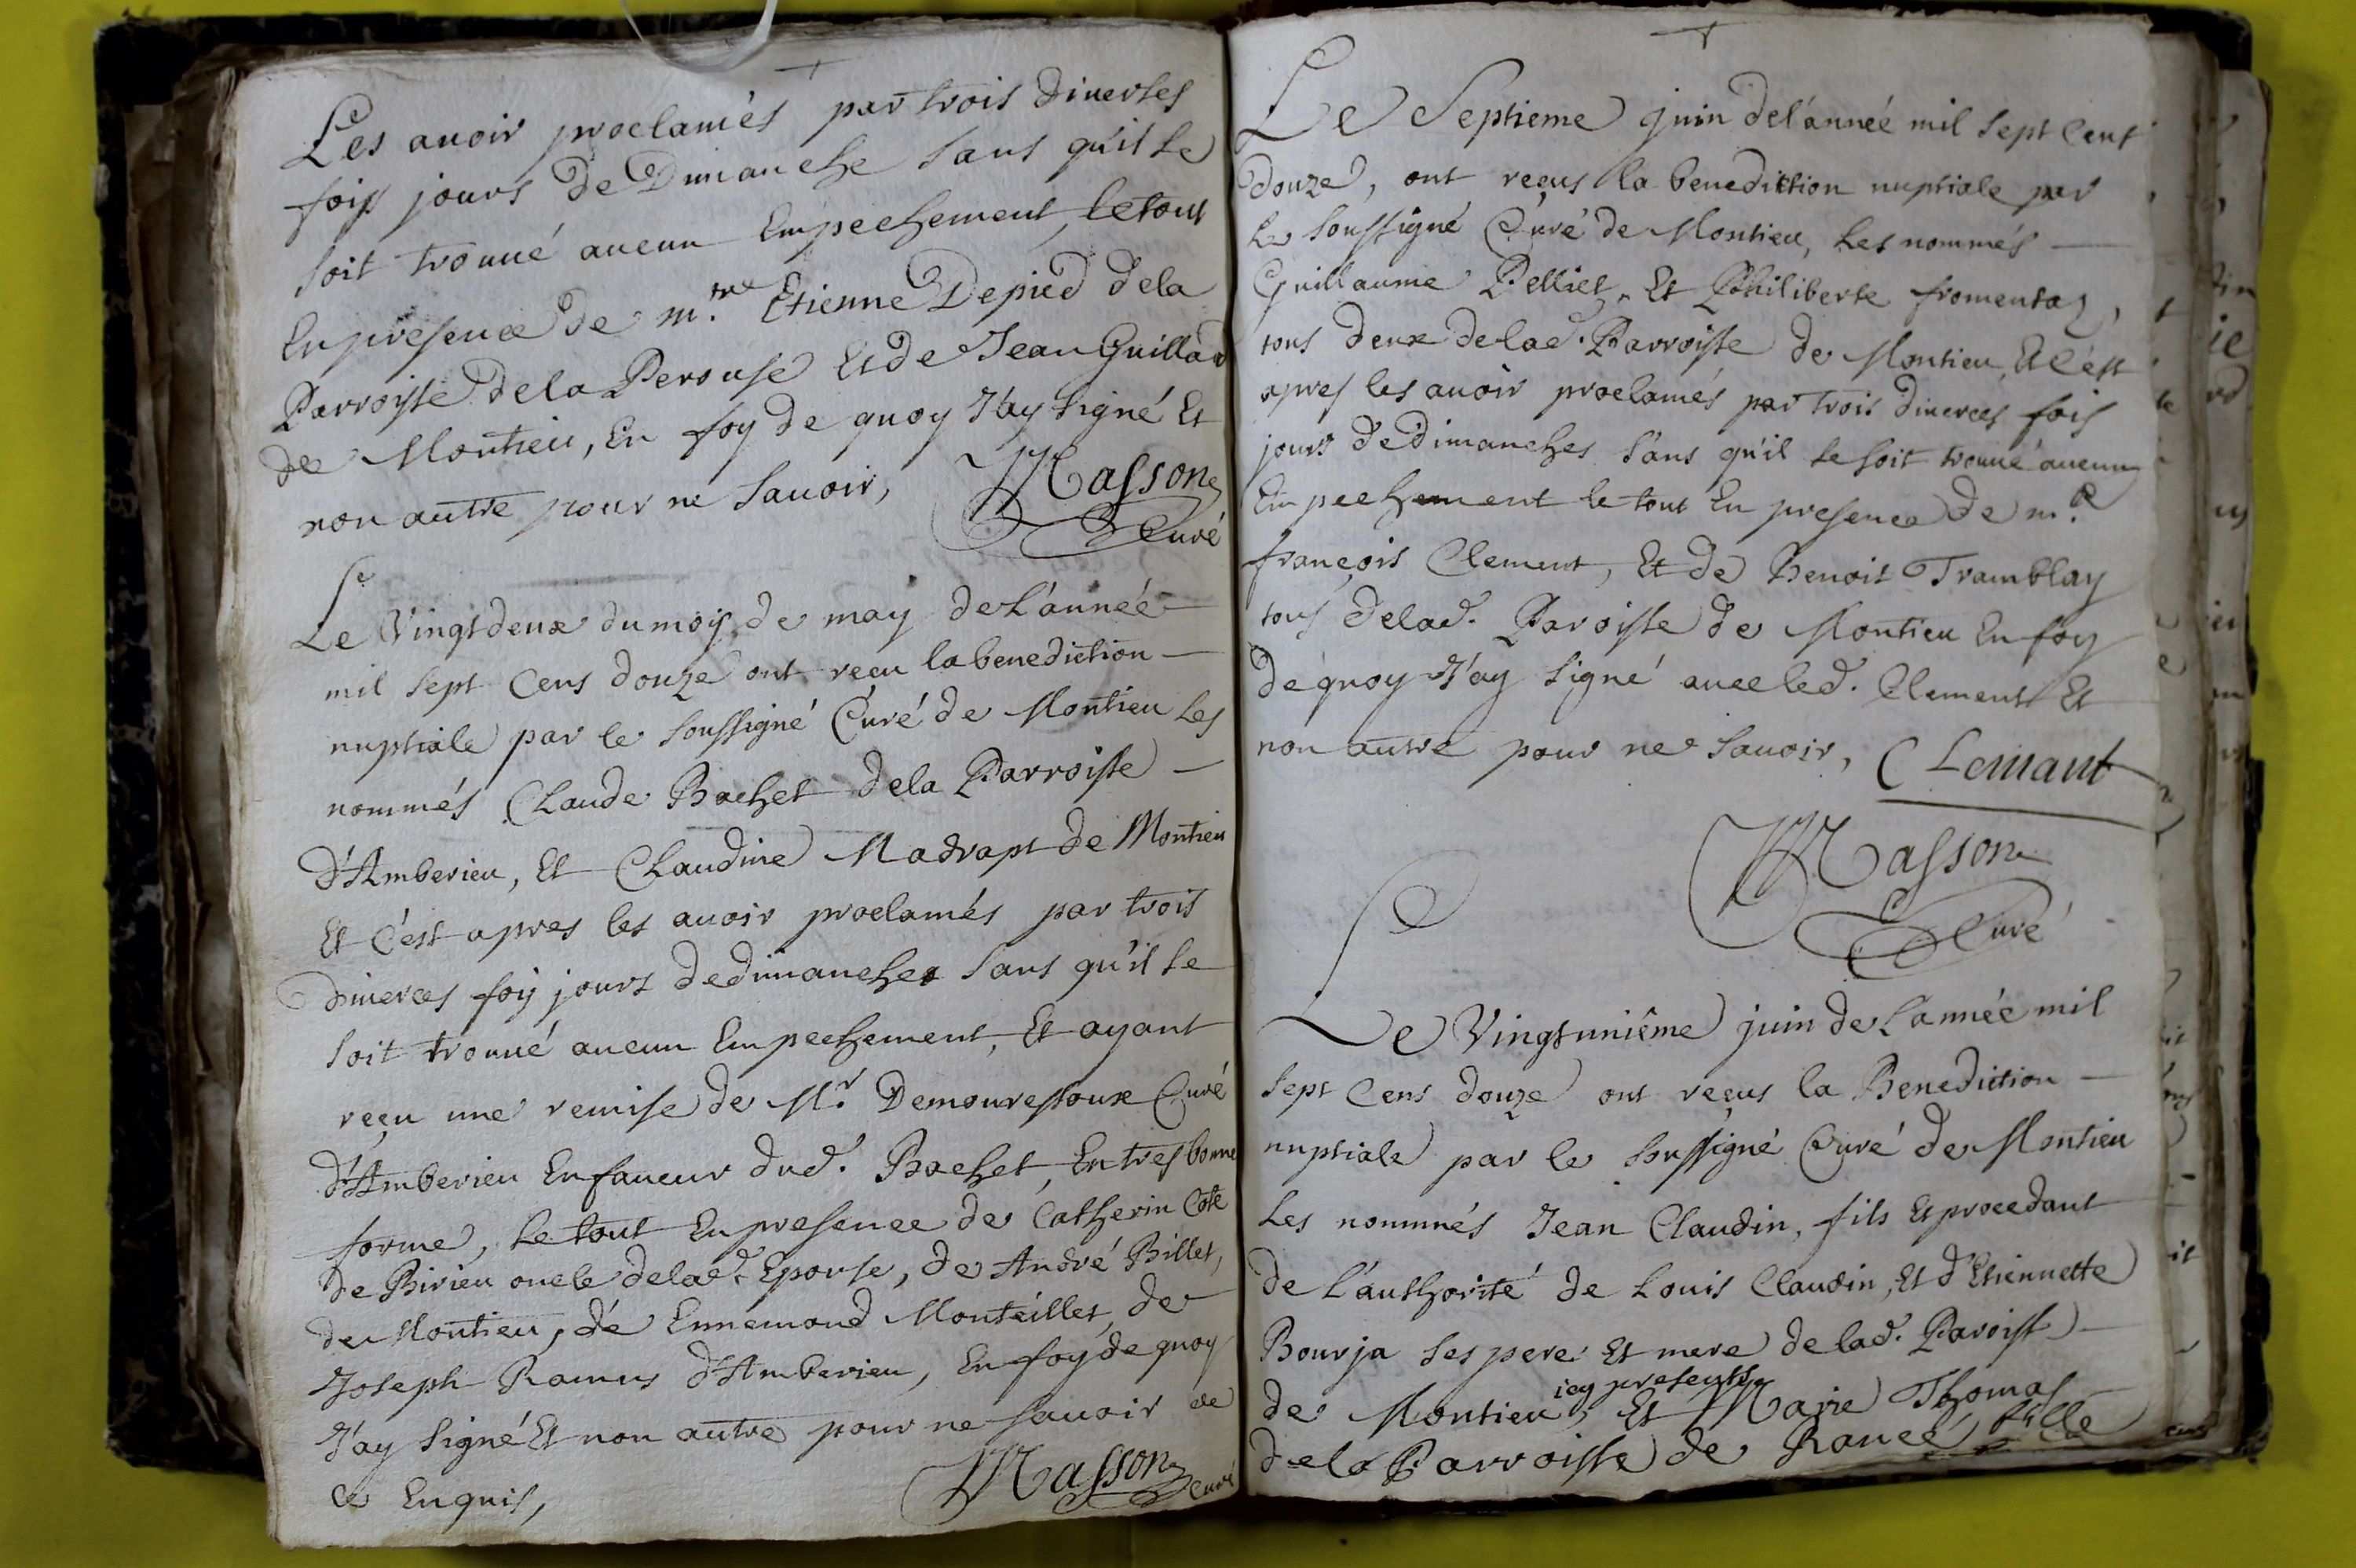 Les auoir proclamés par trois diuerses
fois jours de Dimanche sans qu'il se
soit trouué aucun Empechement, le tout
En presence de m.tre Etienne Depied de la
Parroisse de la Perouse Et de Jean Guillard
de Montieu, En foy de quoy J'ay signé Et
non autre pour ne sauoir, Masson
Curé
Le Vingt deux du mois de may de L'année
mil sept Cens douze ont reçu la benediction
nuptiale par le soussigné Curé de Montieu Les
nommés Claude Bachet de la Parroisse
d'Amberieu, Et Claudine Madrapt de Montieu
Et C'est apres les auoir proclamés par trois
diuerces fois jours de dimanches sans qu'il se
soit trouué aucun Empechement, Et ayant
reçu une remise de Mr. Demourestoux Curé
d'Amberieu En faueur dud. Bachet, En tres bonne
forme, Le tout En presence de Catherin Cote
de Birieu oncle de lad. Epouse, de André Billet,
de Montieu, dé Ennemond Monteillet, de
Joseph Ramus d'Amberieu, En foy de quoy
J'ay signé Et non autre pour ne sauoir de
ce Enquis, Masson Curé
Le Septieme juin de l'année mil sept Cent
douze, ont reçus la benediction nuptiale par
Le soussigné Curé de Montieu, Les nommés
Guillaume Pelliet, Et Philiberte fromentaz,
tous deux de lad. Parroisse de Montieu, Et C'est
apres les auoir proclamés par trois diuerces fois
jours de dimanches sans qu'il se soit trouué aucun
Empechement le tout En presence de m.e
françois Clement, Et de Benoit Tramblay
tous de lad. Paroisse de Montieu En foy
de quoy J'ay signé auec led. Clement Et
non autre pour ne sauoir, CLemant
Masson
Curé
Le Vingt uniême juin de L'année mil
sept Cens douze ont reçus la Benediction
nuptiale par le soussigné Curé de Montieu
Les nommés Jean Claudin, fils Et procedant
de L'authorité de Louis Claudin, Et d'Etiennette
Bourja ses pere Et mere de lad. Paroisse
icy presents
de Montieu, Et Marie Thomas
de la Parroisse de Rancé, fille